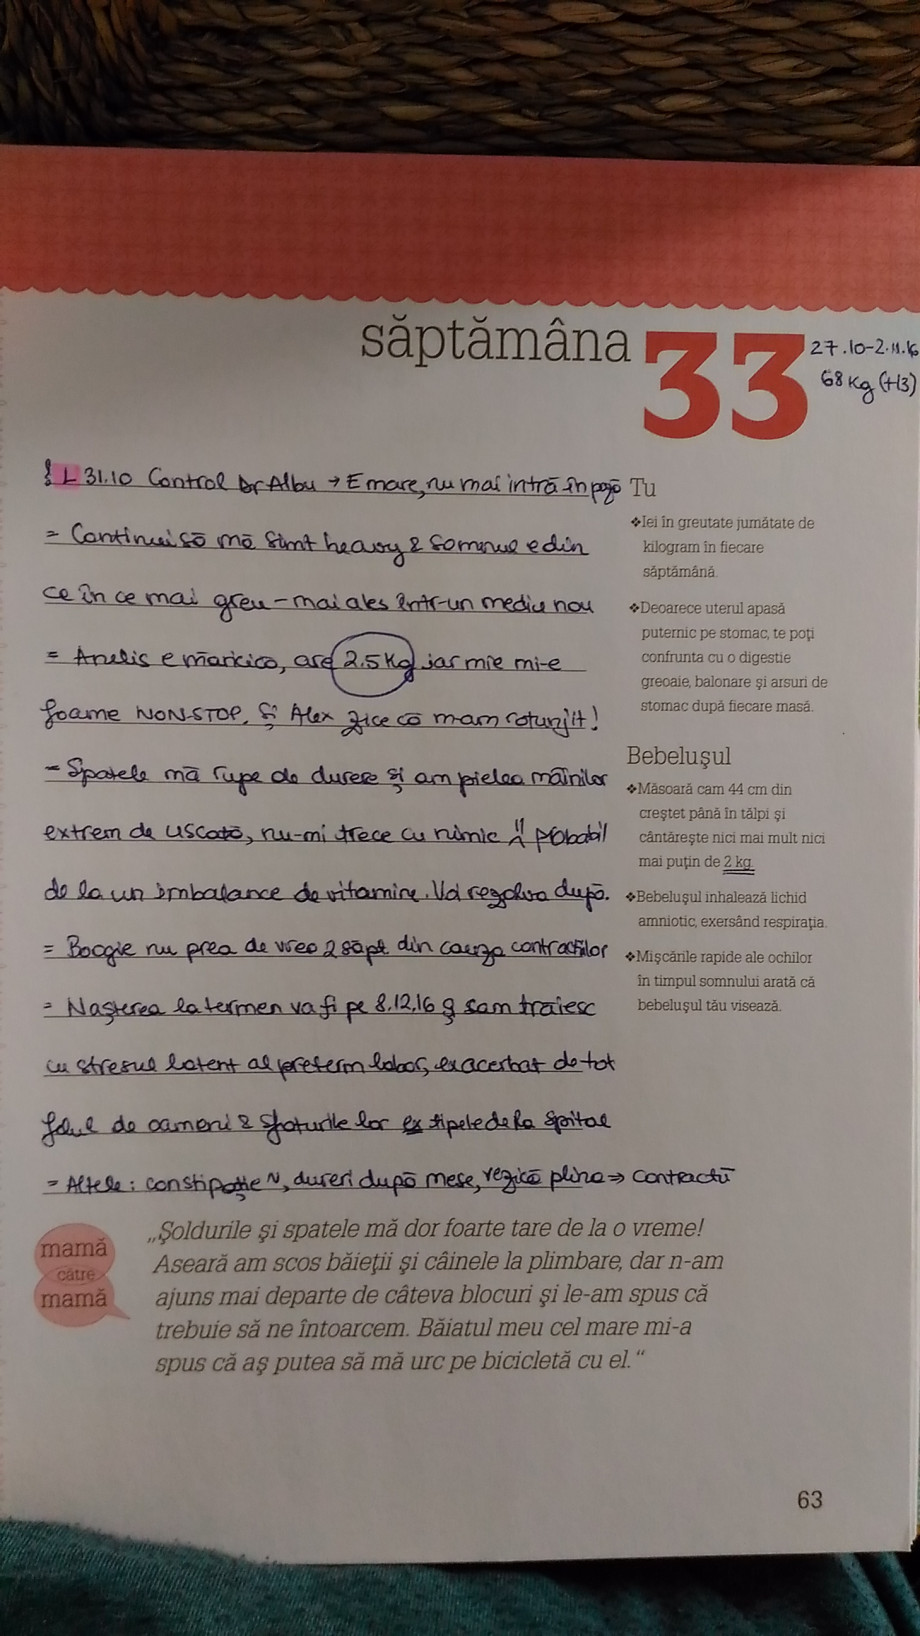 săptămâna 33
27.10-2.11.16
68 Kg (+13)
L 31.10 Control Dr Albu → E mare, nu mai intră în poză
= Continui să mă simt heavy & somnul e din
ce în ce mai greu - mai ales într-un mediu nou
= Anelis e măricică, are 2.5 Kg iar mie mi-e
foame NON-STOP. Și Alex zice că m-am rotunjit!
- Spatele mă rupe de durere și am pielea mâinilor
extrem de uscată, nu-mi trece cu nimic !! probabil
de la un imbalance de vitamine. Voi rezolva după.
= Boogie nu prea de vreo 2 săpt din cauza contracțiilor
= Nașterea la termen va fi pe 8.12.16 și sam trăiesc
cu stresul latent al preterm labor, exacerbat de tot
felul de oameni & sfaturile lor ex tipele de la spital
= Altele: constipație N, dureri după mese, vezică plină => contracții
Tu
❖Iei în greutate jumătate de
kilogram în fiecare
săptămână.
❖Deoarece uterul apasă
puternic pe stomac, te poți
confrunta cu o digestie
greoaie, balonare și arsuri de
stomac după fiecare masă.
Bebelușul
❖Măsoară cam 44 cm din
creștet până în tălpi și
cântărește nici mai mult nici
mai puțin de 2 kg.
❖Bebelușul inhalează lichid
amniotic, exersând respirația.
❖Mișcările rapide ale ochilor
în timpul somnului arată că
bebelușul tău visează.
mamă
către
mamă
„Șoldurile și spatele mă dor foarte tare de la o vreme!
Aseară am scos băieții și câinele la plimbare, dar n-am
ajuns mai departe de câteva blocuri și le-am spus că
trebuie să ne întoarcem. Băiatul meu cel mare mi-a
spus că aș putea să mă urc pe bicicletă cu el.“
63